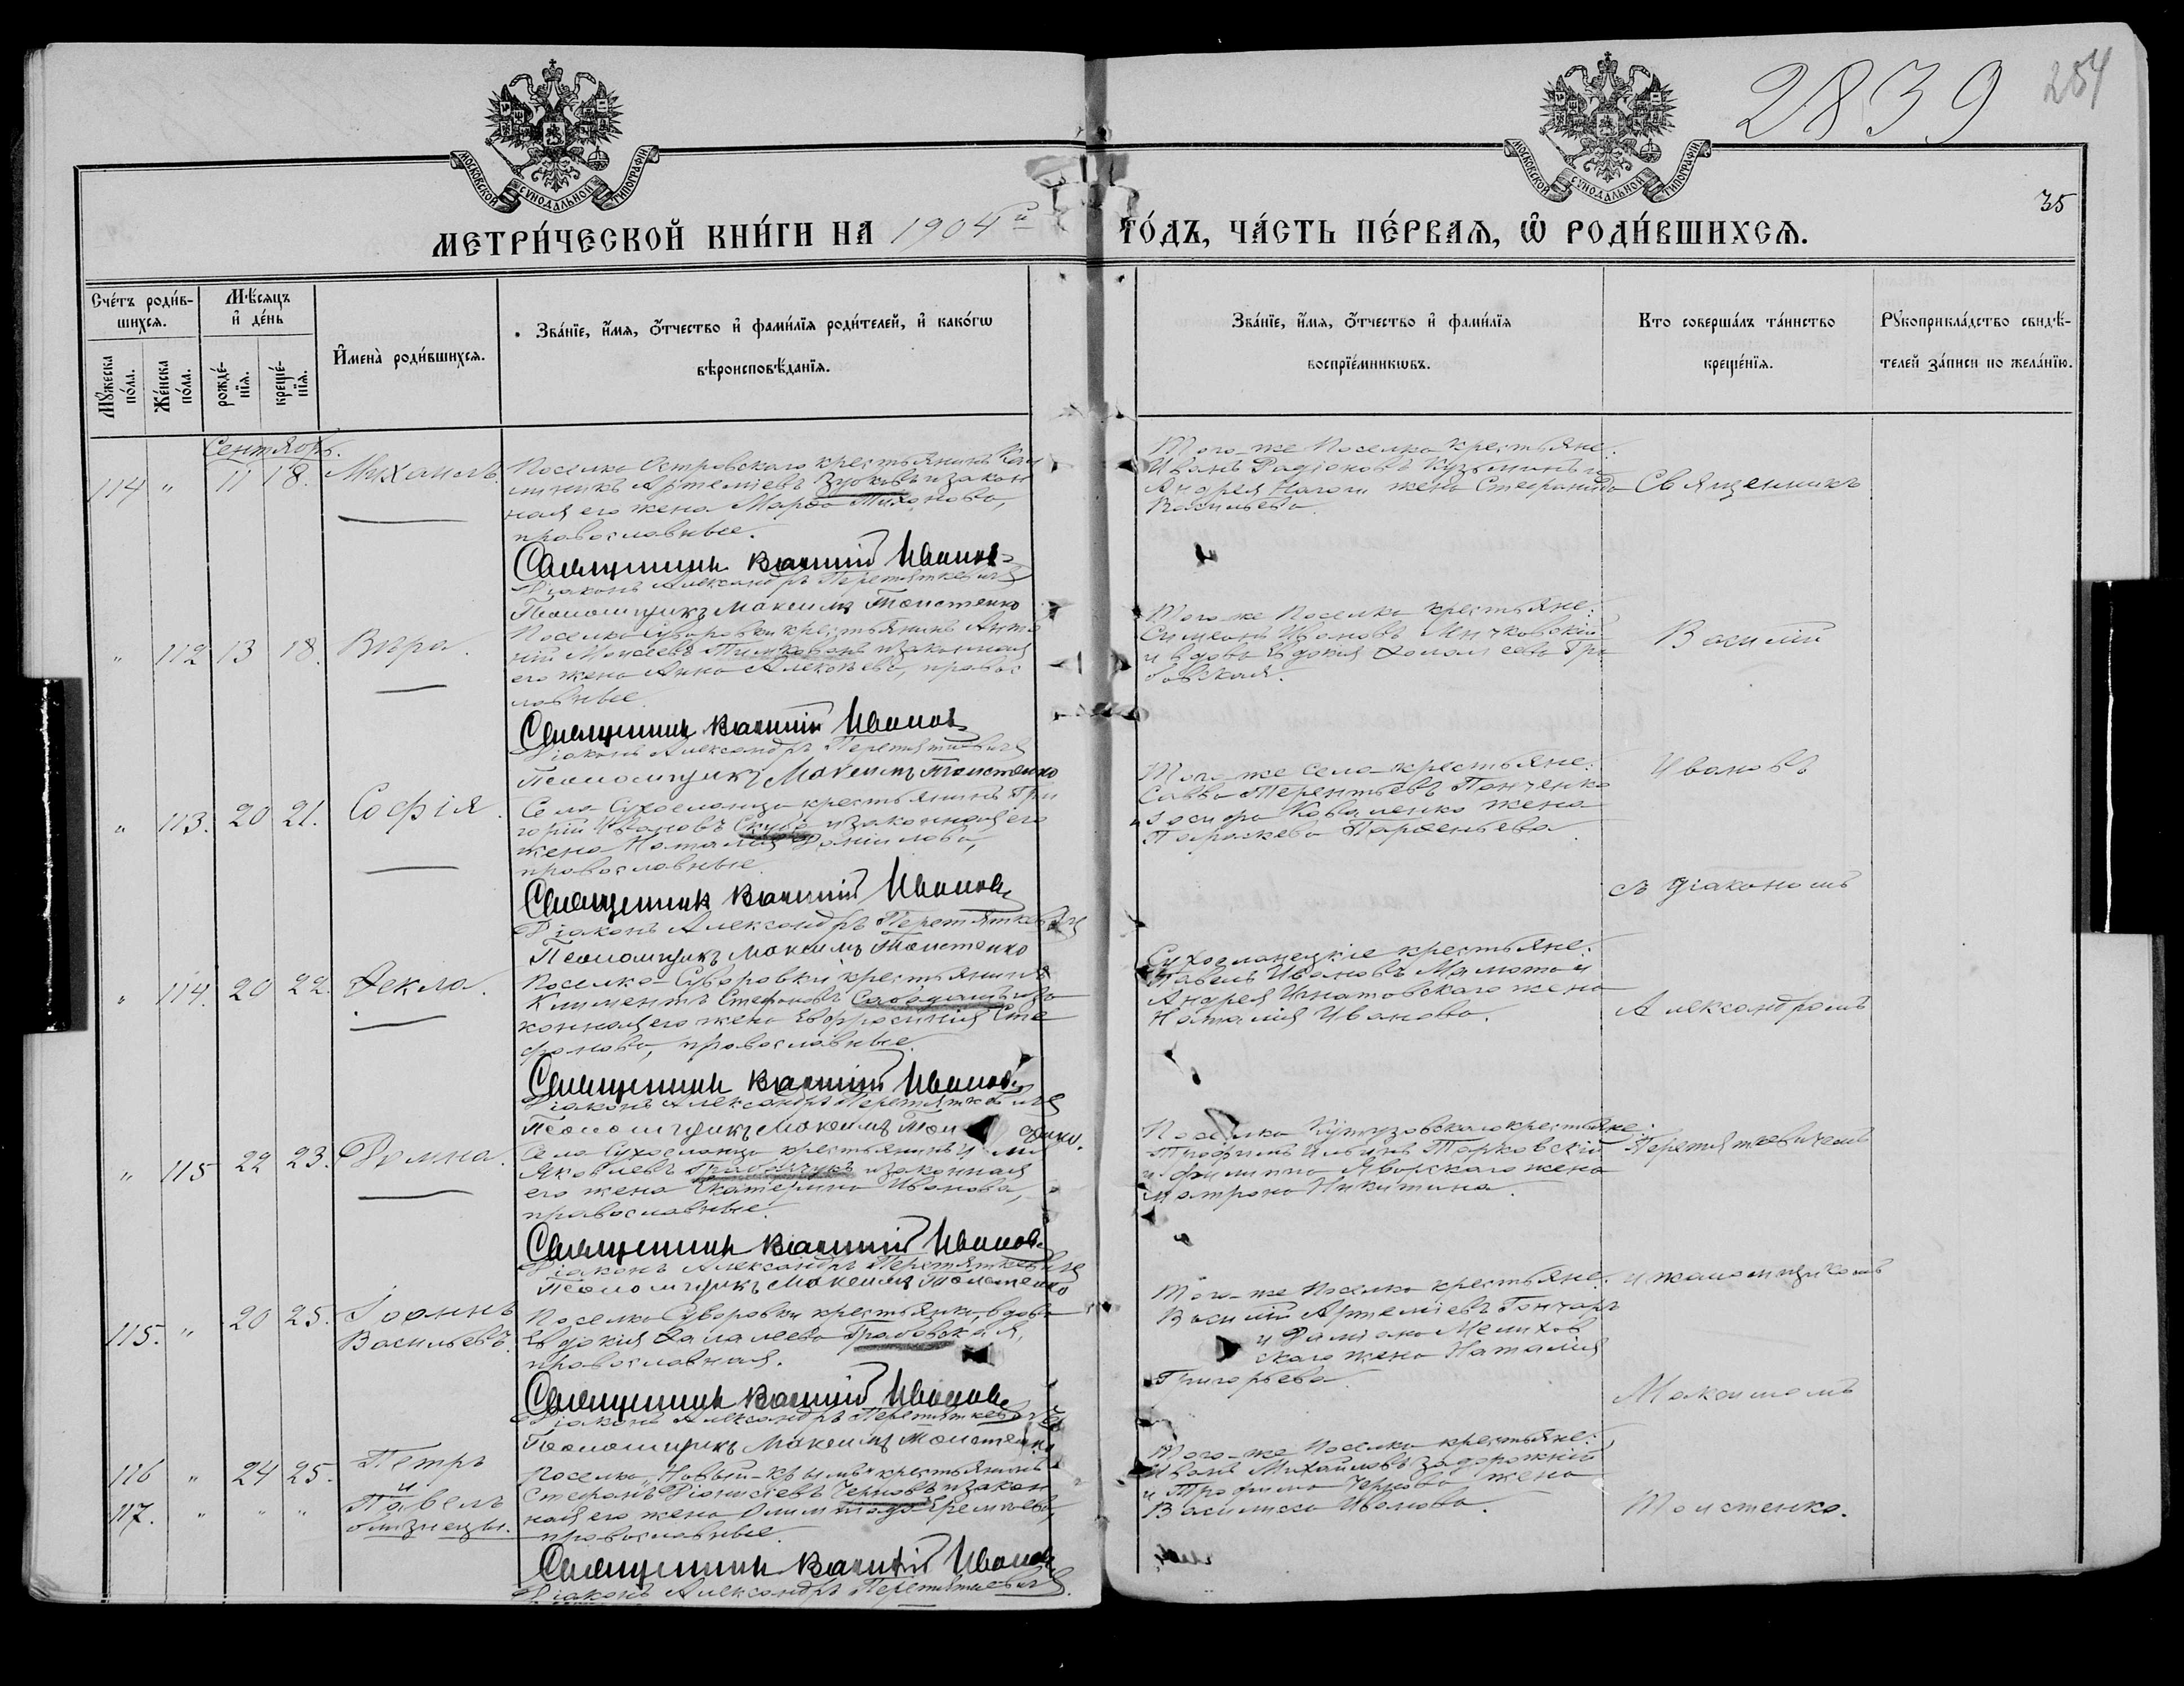 2839
204
35
МОСКОВСКОЙ СѴНОДАЛЬНОЙ ТИПОГРАФІИ
МОСКОВСКОЙ СѴНОДАЛЬНОЙ ТИПОГРАФІИ
МЕТРИ́ЧЕСКОЙ КНИ́ГИ НА 1904й ГО́ДЪ, ЧА́СТЬ ПЕ́РВАѦ, Ѽ РОДИ́ВШИХСѦ.
Сче́тъ роди́в-
шихсѧ.
Мꙋ́жеска по́ла.
Же́нска по́ла.
Мѣ́сѧцъ
и҆ де́нь
рожде́-нїѧ.
креще́-нїѧ.
И҆мена̀ роди́вшихсѧ.
Зва́нїе, и҆́мѧ, ѻ҆́тчество и҆ фами́лїѧ роди́телей, и҆ како́гѡ
вѣроисповѣ́данїѧ.
Зва́нїе, и҆́мѧ, ѻ҆́тчество и҆ фами́лїѧ
воспрїе́мникѡвъ.
Кто соверша́лъ та́инство
креще́нїѧ.
Рꙋкоприкла́дство свидѣ́-
телей за́писи по жела́нїю.
Сентябрь.
114 " 11 18. Михаилъ
Поселка Островскаго крестьянинъ Кал
линикъ Артеміевъ Зуковъ и закон
ная его жена Марѳа Тихонова,
православные.
Священникъ Василій Ивановъ
Діаконъ Александръ Перетяткевичъ
Псаломщикъ Максимъ Толстенко
Того-же Поселка крестьяне:
Иванъ Радіоновъ Кузьминъ и
Андрея Нагои жена Стефанида
Васильева.
" 112 13 18. Вѣра.
Поселка Суворовки крестьянинъ Анто
ній Моисеевъ и законная
его жена Анна Алексѣева, правос
лавные.
Священникъ Василій Ивановъ
Діаконъ Александръ Перетяткевичъ
Псаломщикъ Максимъ Толстенко
Того-же Поселка крестьяне:
Симеонъ Ивановъ Мичковскій
и вдова Евдокія Ѳалалеева Гра
бовская.
" 113. 20 21. Софія.
Села Сухоеланца крестьянинъ Гри
горій Ивановъ Скуба и законная его
жена Наталія Даніилова,
православные.
Священникъ Василій Ивановъ
Діаконъ Александръ Перетяткевичъ
Псаломщикъ Максимъ Толстенко
Того-же Села крестьяне:
Савва Терентьевъ Панченко
и Іосифа Коваленко жена
Параскева Парѳеньева.
" 114. 20 22. Ѳекла.
Поселка Суворовки крестьянинъ
Климентъ Стефановъ и за
конная его жена Евфросинія Сте
фанова, православные.
Священникъ Василій Ивановъ
Діаконъ Александръ Перетяткевичъ
Псаломщикъ Максимъ Толстенко.
Сухоеланецкіе крестьяне:
Павелъ Ивановъ Малота и
Андрея Игнатовскаго жена
Наталія Иванова.
" 115 22 23. Домна.
Села Сухоеланца крестьянинъ
Яковлевъ Грабарчукъ и законная
его жена Екатерина Иванова,
православные.
Священникъ Василій Ивановъ
Діаконъ Александръ Перетяткевичъ
Псаломщикъ Максимъ Толстенко
Поселка Кутузовскаго крестьяне:
Трофимъ Ильинъ Тарковскій
и Филиппа Яворскаго жена
Матрона Никитина.
115. " 20 25. Іоаннъ
Васильевъ.
Поселка Суворовки крестьянка, вдова
Евдокія Ѳалалеева Грабовская,
православная.
Священникъ Василій Ивановъ
Діаконъ Александръ Перетяткевичъ
Псаломщикъ Максимъ Толстенко
Того-же Поселка крестьяне:
Василій Артеміевъ Гончаръ
и Даміана Мелихов
скаго жена Наталія
Григорьева.
116 " 24 25. Петръ
и
117. " " " Павелъ
близнецы.
Поселка „Новый-Крымъ" крестьянинъ
Стефанъ Діонисіевъ Черновъ и закон
ная его жена Олимпіада Еремѣева,
православные.
Священникъ Василій Ивановъ
Діаконъ Александръ Перетяткевичъ.
Того-же Поселка крестьяне:
Иванъ Михайловъ Задорожній
и Трофима Чернова жена
Василиса Иванова.
Священникъ
Василій
Ивановъ
съ діакономъ
Александромъ
Перетяткевичемъ
и псаломщикомъ
Максимомъ
Толстенко.